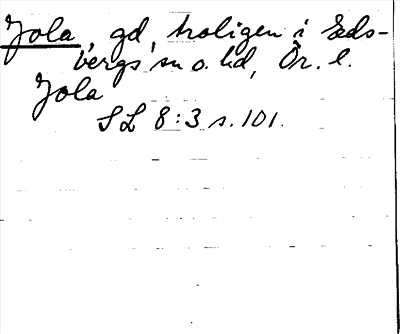 Jola, gd, troligen i Eds-
bergs sn o. hd, Ör. l.
Jola
SL 8:3 s. 101.